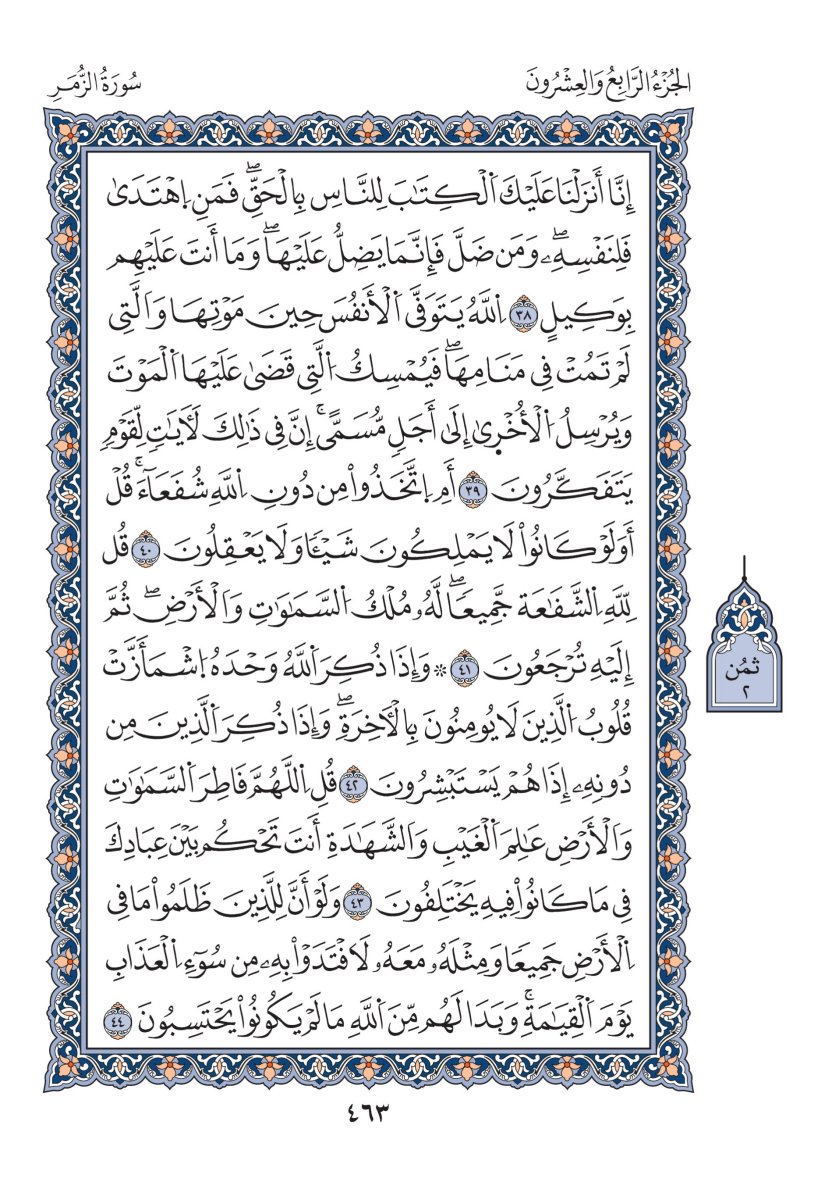 الجُزْءُ الرَّابِعُ وَالعِشْرُونَ
سُورَةُ الزُّمَرِ
إِنَّا أَنزَلْنَا عَلَيْكَ اَ۬لْكِتَٰبَ لِلنَّاسِ بِالْحَقِّۖ فَمَنِ اِ۪هْتَد۪ىٰ
فَلِنَفْسِهِۦۖ وَمَن ضَلَّ فَإِنَّمَا يَضِلُّ عَلَيْهَاۖ وَمَا أَنتَ عَلَيْهِم
بِوَكِيلٍ ٣٨ اِ۬للَّهُ يَتَوَفَّى اَ۬لْأَنفُسَ حِينَ مَوْتِهَا وَالَّتِي
لَمْ تَمُتْ فِي مَنَامِهَاۖ فَيُمْسِكُ اُ۬لَّتِي قَضَىٰ عَلَيْهَا اَ۬لْمَوْتَ
وَيُرْسِلُ اُ۬لْأُخْر۪ىٰ إِلَىٰ أَجَلٍ مُّسَمًّىۚ إِنَّ فِي ذَٰلِكَ لَأٓيَٰتٍ لِّقَوْمٍ
يَتَفَكَّرُونَ ٣٩ أَمِ اِ۪تَّخَذُواْ مِن دُونِ اِ۬للَّهِ شُفَعَآءَۚ قُلْ
أَوَلَوْ كَانُواْ لَا يَمْلِكُونَ شَيْـًٔا وَلَا يَعْقِلُونَ ٤٠ قُل
لِّلَّهِ اِ۬لشَّفَٰعَة جَّمِيعًاۖ لَّهُۥ مُلْكُ اُ۬لسَّمَٰوَٰتِ وَالْأَرْضِۖ ثُمَّ
إِلَيْهِ تُرْجَعُونَ ٤١ ۞ وَإِذَا ذُكِرَ اَ۬للَّهُ وَحْدَهُ اُ۪شْمَأَزَّتْ
قُلُوبُ اُ۬لَّذِينَ لَا يُومِنُونَ بِالْأٓخِرَةِۖ وَإِذَا ذُكِرَ اَ۬لَّذِينَ مِن
دُونِهِۦ إِذَا هُمْ يَسْتَبْشِرُونَ ٤٢ قُلِ اِ۬للَّهُمَّ فَاطِرَ اَ۬لسَّمَٰوَٰتِ
وَالْأَرْضِ عَٰلِمَ اَ۬لْغَيْبِ وَالشَّهَٰدَةِ أَنتَ تَحْكُم بَيْنَ عِبَادِكَ
فِي مَا كَانُواْ فِيهِ يَخْتَلِفُونَ ٤٣ وَلَوْ أَنَّ لِلَّذِينَ ظَلَمُواْ مَا فِي
اِ۬لْأَرْضِ جَمِيعًا وَمِثْلَهُۥ مَعَهُۥ لَافْتَدَوْاْ بِهِۦ مِن سُوٓءِ اِ۬لْعَذَابِ
يَوْمَ اَ۬لْقِيَٰمَةِۚ وَبَدَا لَهُم مِّنَ اَ۬للَّهِ مَا لَمْ يَكُونُواْ يَحْتَسِبُونَ ٤٤
ثُمُن
٢
٤٦٣